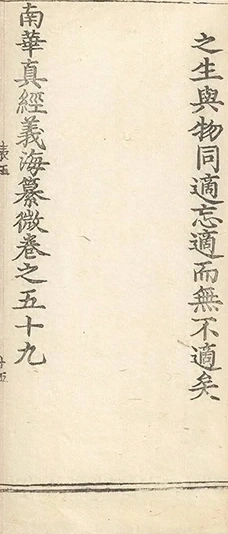 之生與物同適忘適而無不適矣
南華真經義海纂微卷之五十九